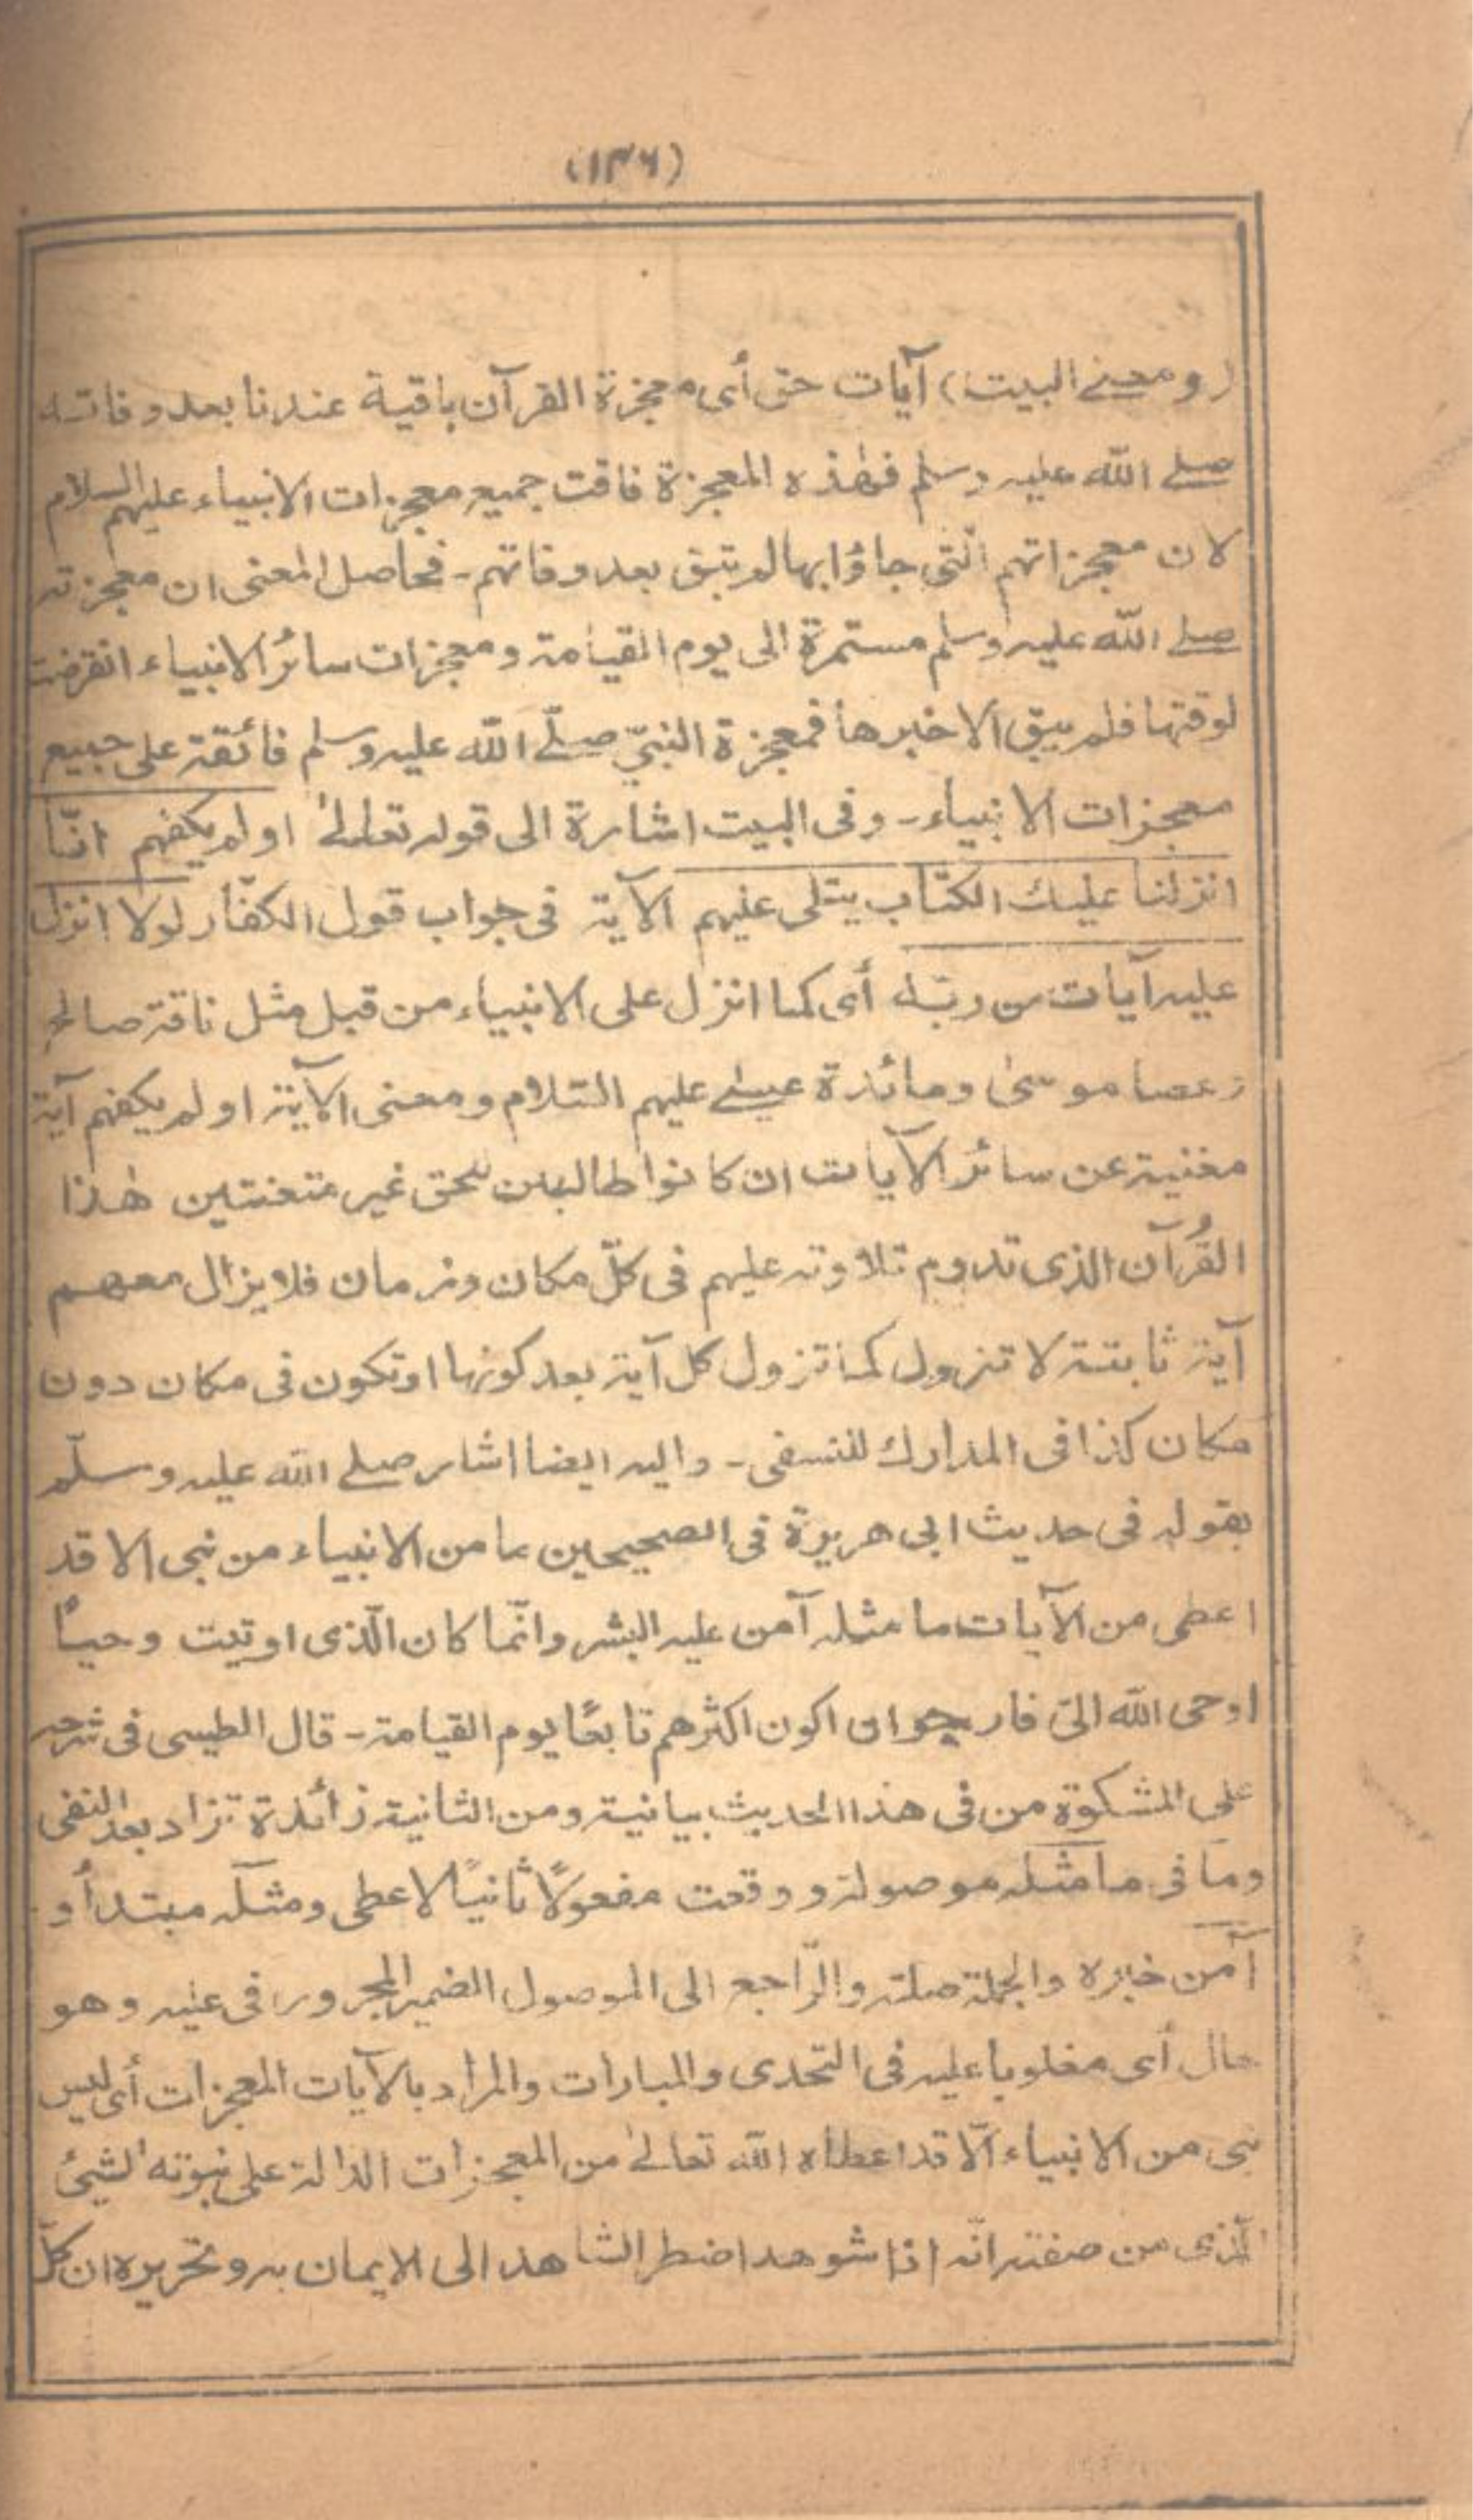 (۱۴۶)
(ومعنے البيت) آيات حق أى معجزة القرآن باقية عندنا بعد وفاته
صلے الله عليه وسلم فهٰذه المعجزة فاقت جميع معجزات الانبياء عليهم السلام
لان معجزاتهم الّتى جاؤا بها لم تبق بعد وفاتهم - فحاصل المعنى ان معجزته
صلے الله عليه وسلم مستمرة الى يوم القيامة ومعجزات سائر الانبياء انقرضت
لوقتها فلم يبق الا خبرها فمعجزة النبيّ صلّے الله عليه وسلم فائقة على جميع
معجزات الانبياء - وفى البيت اشارة الى قوله تعالىٰ اولم يكفهم انّا
انزلنا عليك الكتاب يتلى عليهم الآية فى جواب قول الكفّار لولا انزل
عليه آيات من ربّه أى كما انزل على الانبياء من قبل مثل ناقة صالح
وعصا موسىٰ ومائدة عيسٰے عليهم السّلام ومعنى الآية اولم يكفهم آية
مغنية عن سائر الآيات ان كانوا طالبين للحق غير متعنتين هٰذا
القُرآن الذى تدوم تلاوته عليهم فى كلّ مكان وزمان فلا يزال معهم
آية ثابتة لا تزول كما تزول كل آية بعد كونها او تكون فى مكان دون
مكان كذا فى المدارك للنسفى - واليه ايضا اشار صلے الله عليه وسلّم
بقوله فى حديث ابى هريرة فى الصحيحين ما من الانبياء من نبى الا قد
اعطى من الآيات ما مثله آمن عليه البشر وانّما كان الّذى اوتيت وحيًا
اوحى الله الىّ فارجو ان اكون اكثرهم تابعًا يوم القيامة - قال الطيبى فى شرحه
على المشكوة من فى هذا الحديث بيانية ومن الثانية زائدة تزاد بعد النفى
وما فى ما مثله موصولة ووقعت مفعولًا ثانيًا لاعطى ومثله مبتدأ و
آمن خبره والجملة صلة والرّاجع الى الموصول الضمير المجرور فى عليه وهو
حال أى مغلوبا عليه فى التحدى والمبارات والمراد بالآيات المعجزات أى ليس
نبى من الانبياء الّا قد اعطاه الله تعالىٰ من المعجزات الدالة على نبوته الشيئ
الّذى من صفته انّه اذا شوهد اضطر الشاهد الى الايمان به وتحريره ان كلّ